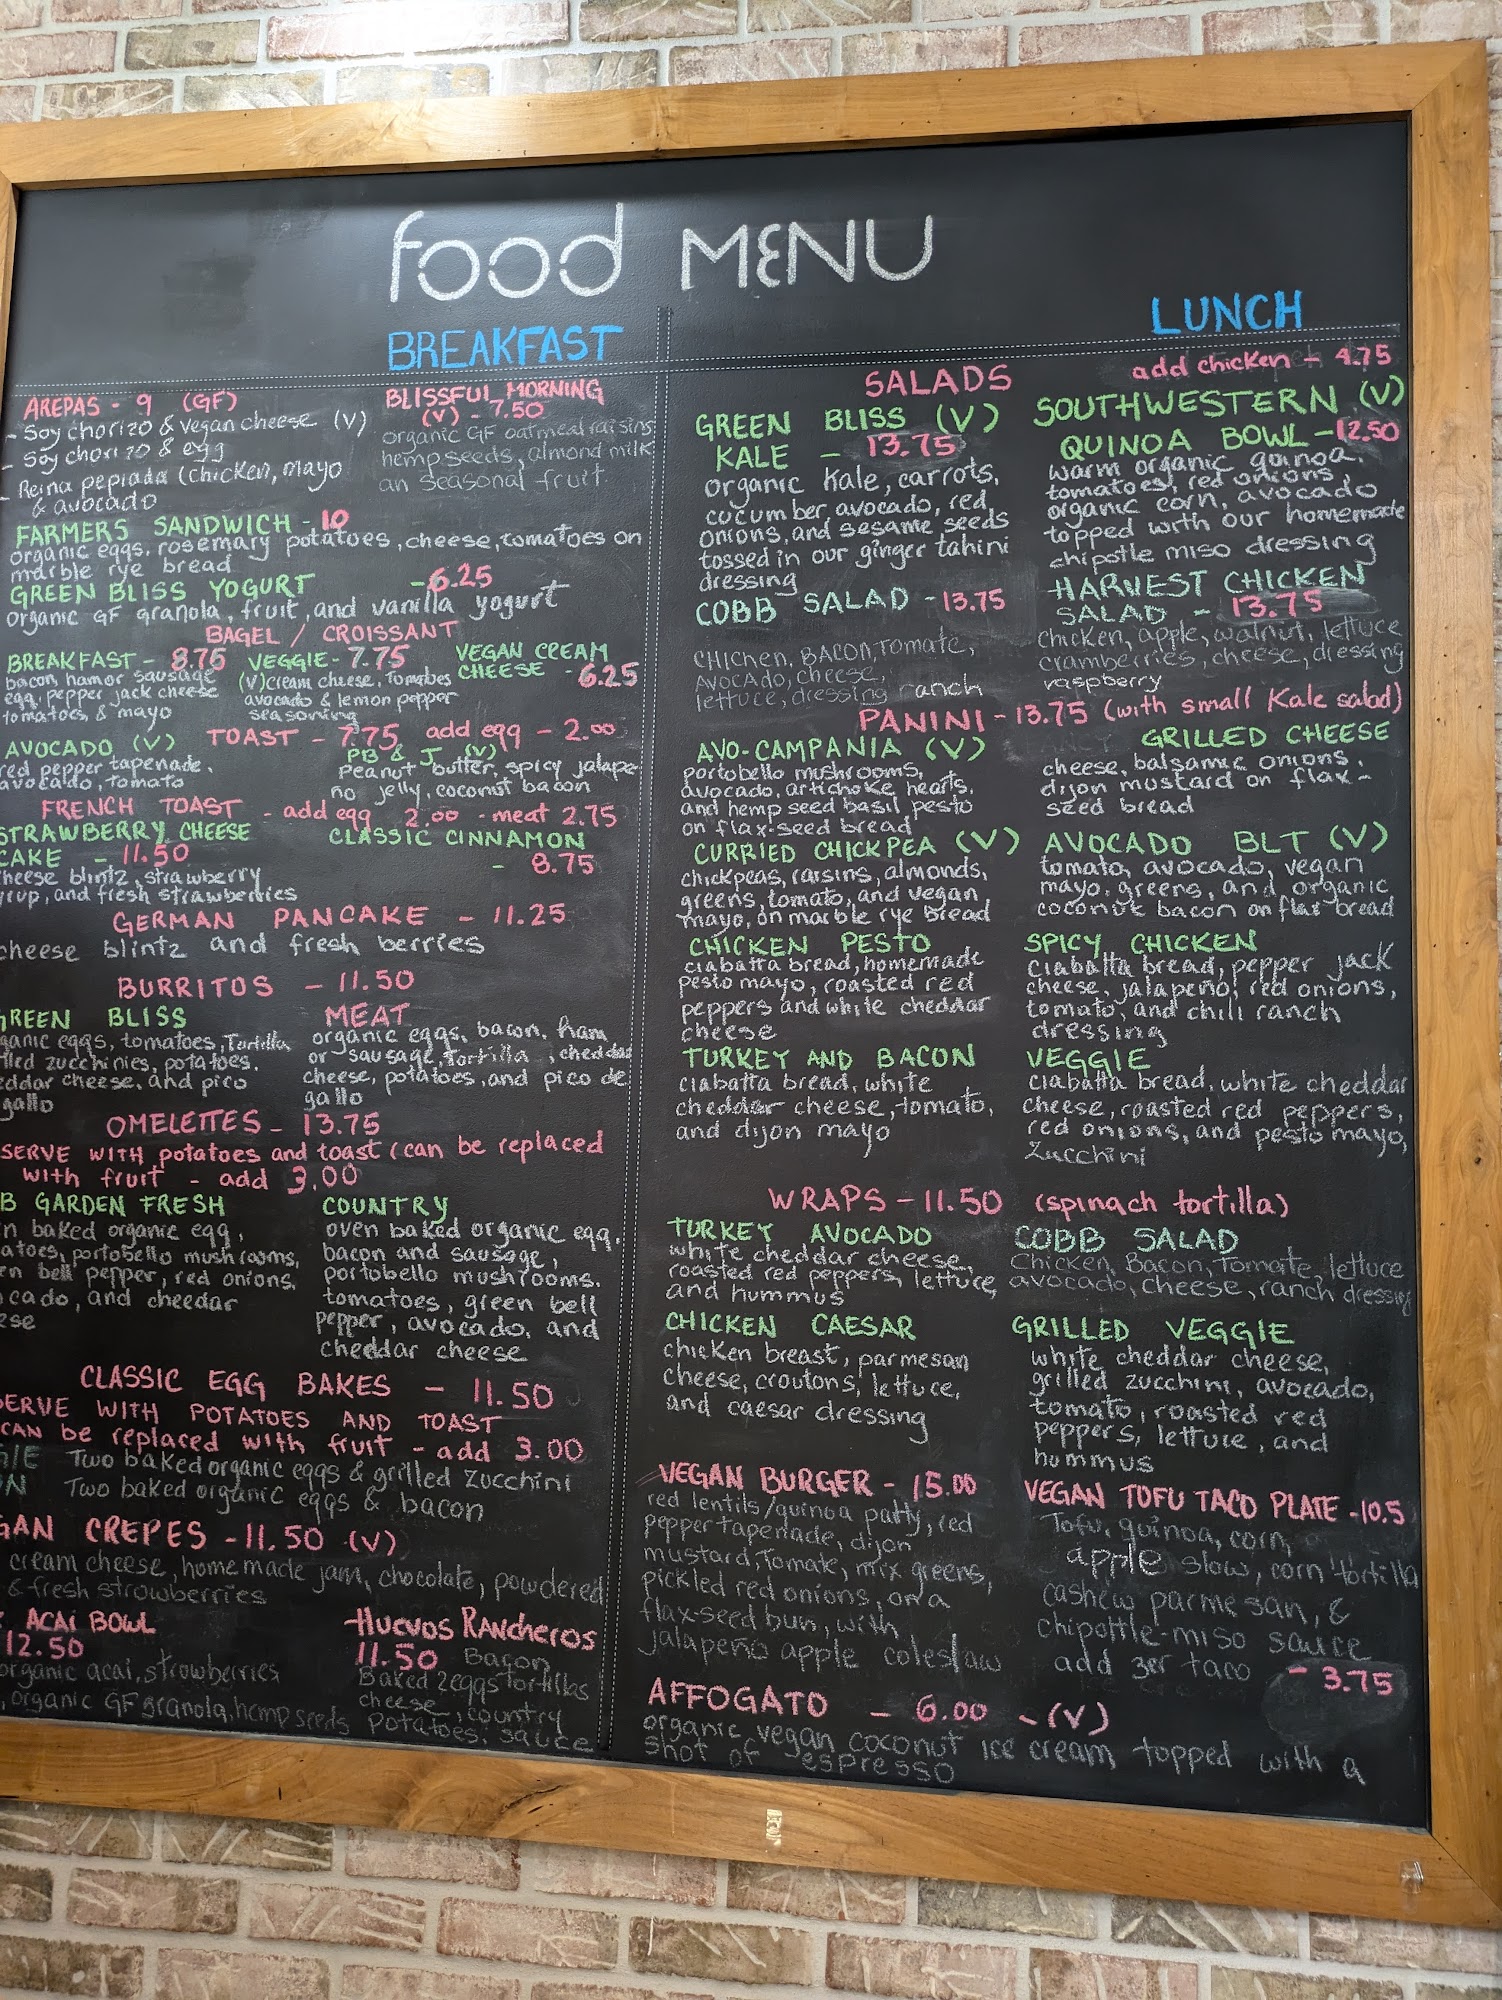 food MENU
BREAKFAST
AREPAS - 9 (GF)
- Soy chorizo & vegan cheese (V)
- Soy chorizo & egg
- Reina pepiada (chicken, mayo
& avocado
BLISSFUL MORNING
(V) - 7.50
organic GF oatmeal raisins
hemp seeds, almond milk
an seasonal fruit
FARMERS SANDWICH - 10
organic eggs, rosemary potatoes, cheese, tomatoes on
marble rye bread
GREEN BLISS YOGURT - 6.25
organic GF granola, fruit, and vanilla yogurt
BAGEL / CROISSANT
BREAKFAST - 8.75
bacon, ham or sausage
egg, pepper jack cheese
tomatoes, & mayo
VEGGIE - 7.75
(V) cream cheese, tomatoes
avocado & lemon pepper
seasoning
VEGAN CREAM
CHEESE - 6.25
TOAST - 7.75 add egg - 2.00
AVOCADO (V)
red pepper tapenade,
avocado, tomato
PB & J (V)
Peanut butter, spicy jalape
no jelly, coconut bacon
FRENCH TOAST - add egg 2.00 - meat 2.75
STRAWBERRY CHEESE
CAKE - 11.50
cheese blintz, strawberry
yrup, and fresh strawberries
CLASSIC CINNAMON
- 8.75
GERMAN PANCAKE - 11.25
cheese blintz and fresh berries
BURRITOS - 11.50
GREEN BLISS
ganic eggs, tomatoes, Tortilla
lled zucchinies, potatoes,
eddar cheese, and pico
gallo
MEAT
organic eggs, bacon, ham
or sausage, tortilla, cheddar
cheese, potatoes, and pico de
gallo
OMELETTES - 13.75
SERVE WITH potatoes and toast (can be replaced
with fruit - add 3.00
B GARDEN FRESH
n baked organic egg,
atoes, portobello mushrooms,
en bell pepper, red onions,
ocado, and cheedar
ese
COUNTRY
oven baked organic egg,
bacon and sausage,
portobello mushrooms,
tomatoes, green bell
pepper, avocado, and
cheddar cheese
CLASSIC EGG BAKES - 11.50
SERVE WITH POTATOES AND TOAST
CAN be replaced with fruit - add 3.00
GIE Two baked organic eggs & grilled zucchini
ON Two baked organic eggs & bacon
GAN CREPES - 11.50 (V)
cream cheese, homemade jam, chocolate, powdered
& fresh strowberries
ACAI BOWL
12.50
organic acai, strowberries
, organic GF granola, hemp seeds
Huevos Rancheros
11.50 Bacon
Baked 2eggs tortillas
cheese, country
potatoes, sauce
LUNCH
SALADS
add chicken - 4.75
GREEN BLISS (V)
KALE - 13.75
organic Kale, carrots,
cucumber, avocado, red
onions, and sesame seeds
tossed in our ginger tahini
dressing
SOUTHWESTERN (V)
QUINOA BOWL - 12.50
warm organic quinoa,
tomatoes, red onions,
organic corn, avocado
topped with our homemade
chipotle miso dressing
COBB SALAD - 13.75
CHICHEN, BACON, TOMATE,
AVOCADO, cheese,
lettuce, dressing ranch
HARVEST CHICKEN
SALAD - 13.75
chicken, apple, walnut, lettuce
cramberries, cheese, dressing
raspberry
PANINI - 13.75 (with small Kale salad)
AVO-CAMPANIA (V)
portobello mushrooms,
avocado, artichoke hearts,
and hemp seed basil pesto
on flax-seed bread
GRILLED CHEESE
cheese, balsamic onions,
dijon mustard on flax-
seed bread
CURRIED CHICKPEA (V)
chickpeas, raisins, almonds,
greens, tomato, and vegan
mayo, on marble rye bread
AVOCADO BLT (V)
tomato, avocado, vegan
mayo, greens, and organic
coconut bacon on flax bread
CHICKEN PESTO
ciabatta bread, homemade
pesto mayo, roasted red
peppers and white cheddar
cheese
SPICY CHICKEN
ciabatta bread, pepper jack
cheese, jalapeño, red onions,
tomato, and chili ranch
dressing
TURKEY AND BACON
ciabatta bread, white
cheddar cheese, tomato,
and dijon mayo
VEGGIE
ciabatta bread, white cheddar
cheese, roasted red peppers,
red onions, and pesto mayo,
zucchini
WRAPS - 11.50 (spinach tortilla)
TURKEY AVOCADO
white cheddar cheese,
roasted red peppers, lettuce,
and hummus
COBB SALAD
Chicken, Bacon, Tomate, lettuce
avocado, cheese, ranch dressing
CHICKEN CAESAR
chicken breast, parmesan
cheese, croutons, lettuce,
and caesar dressing
GRILLED VEGGIE
white cheddar cheese,
grilled zucchini, avocado,
tomato, roasted red
peppers, lettuce, and
hummus
VEGAN BURGER - 15.00
red lentils/quinoa patty, red
pepper tapenade, dijon
mustard, Tomate, mix greens,
pickled red onions, on a
flax-seed bun, with
jalapeño apple coleslaw
VEGAN TOFU TACO PLATE - 10.5
Tofu, quinoa, corn,
apple slow, corn tortilla
cashew parmesan, &
chipottle-miso sauce
add 3er taco - 3.75
AFFOGATO - 6.00 - (V)
organic vegan coconut ice cream, topped with a
shot of espresso